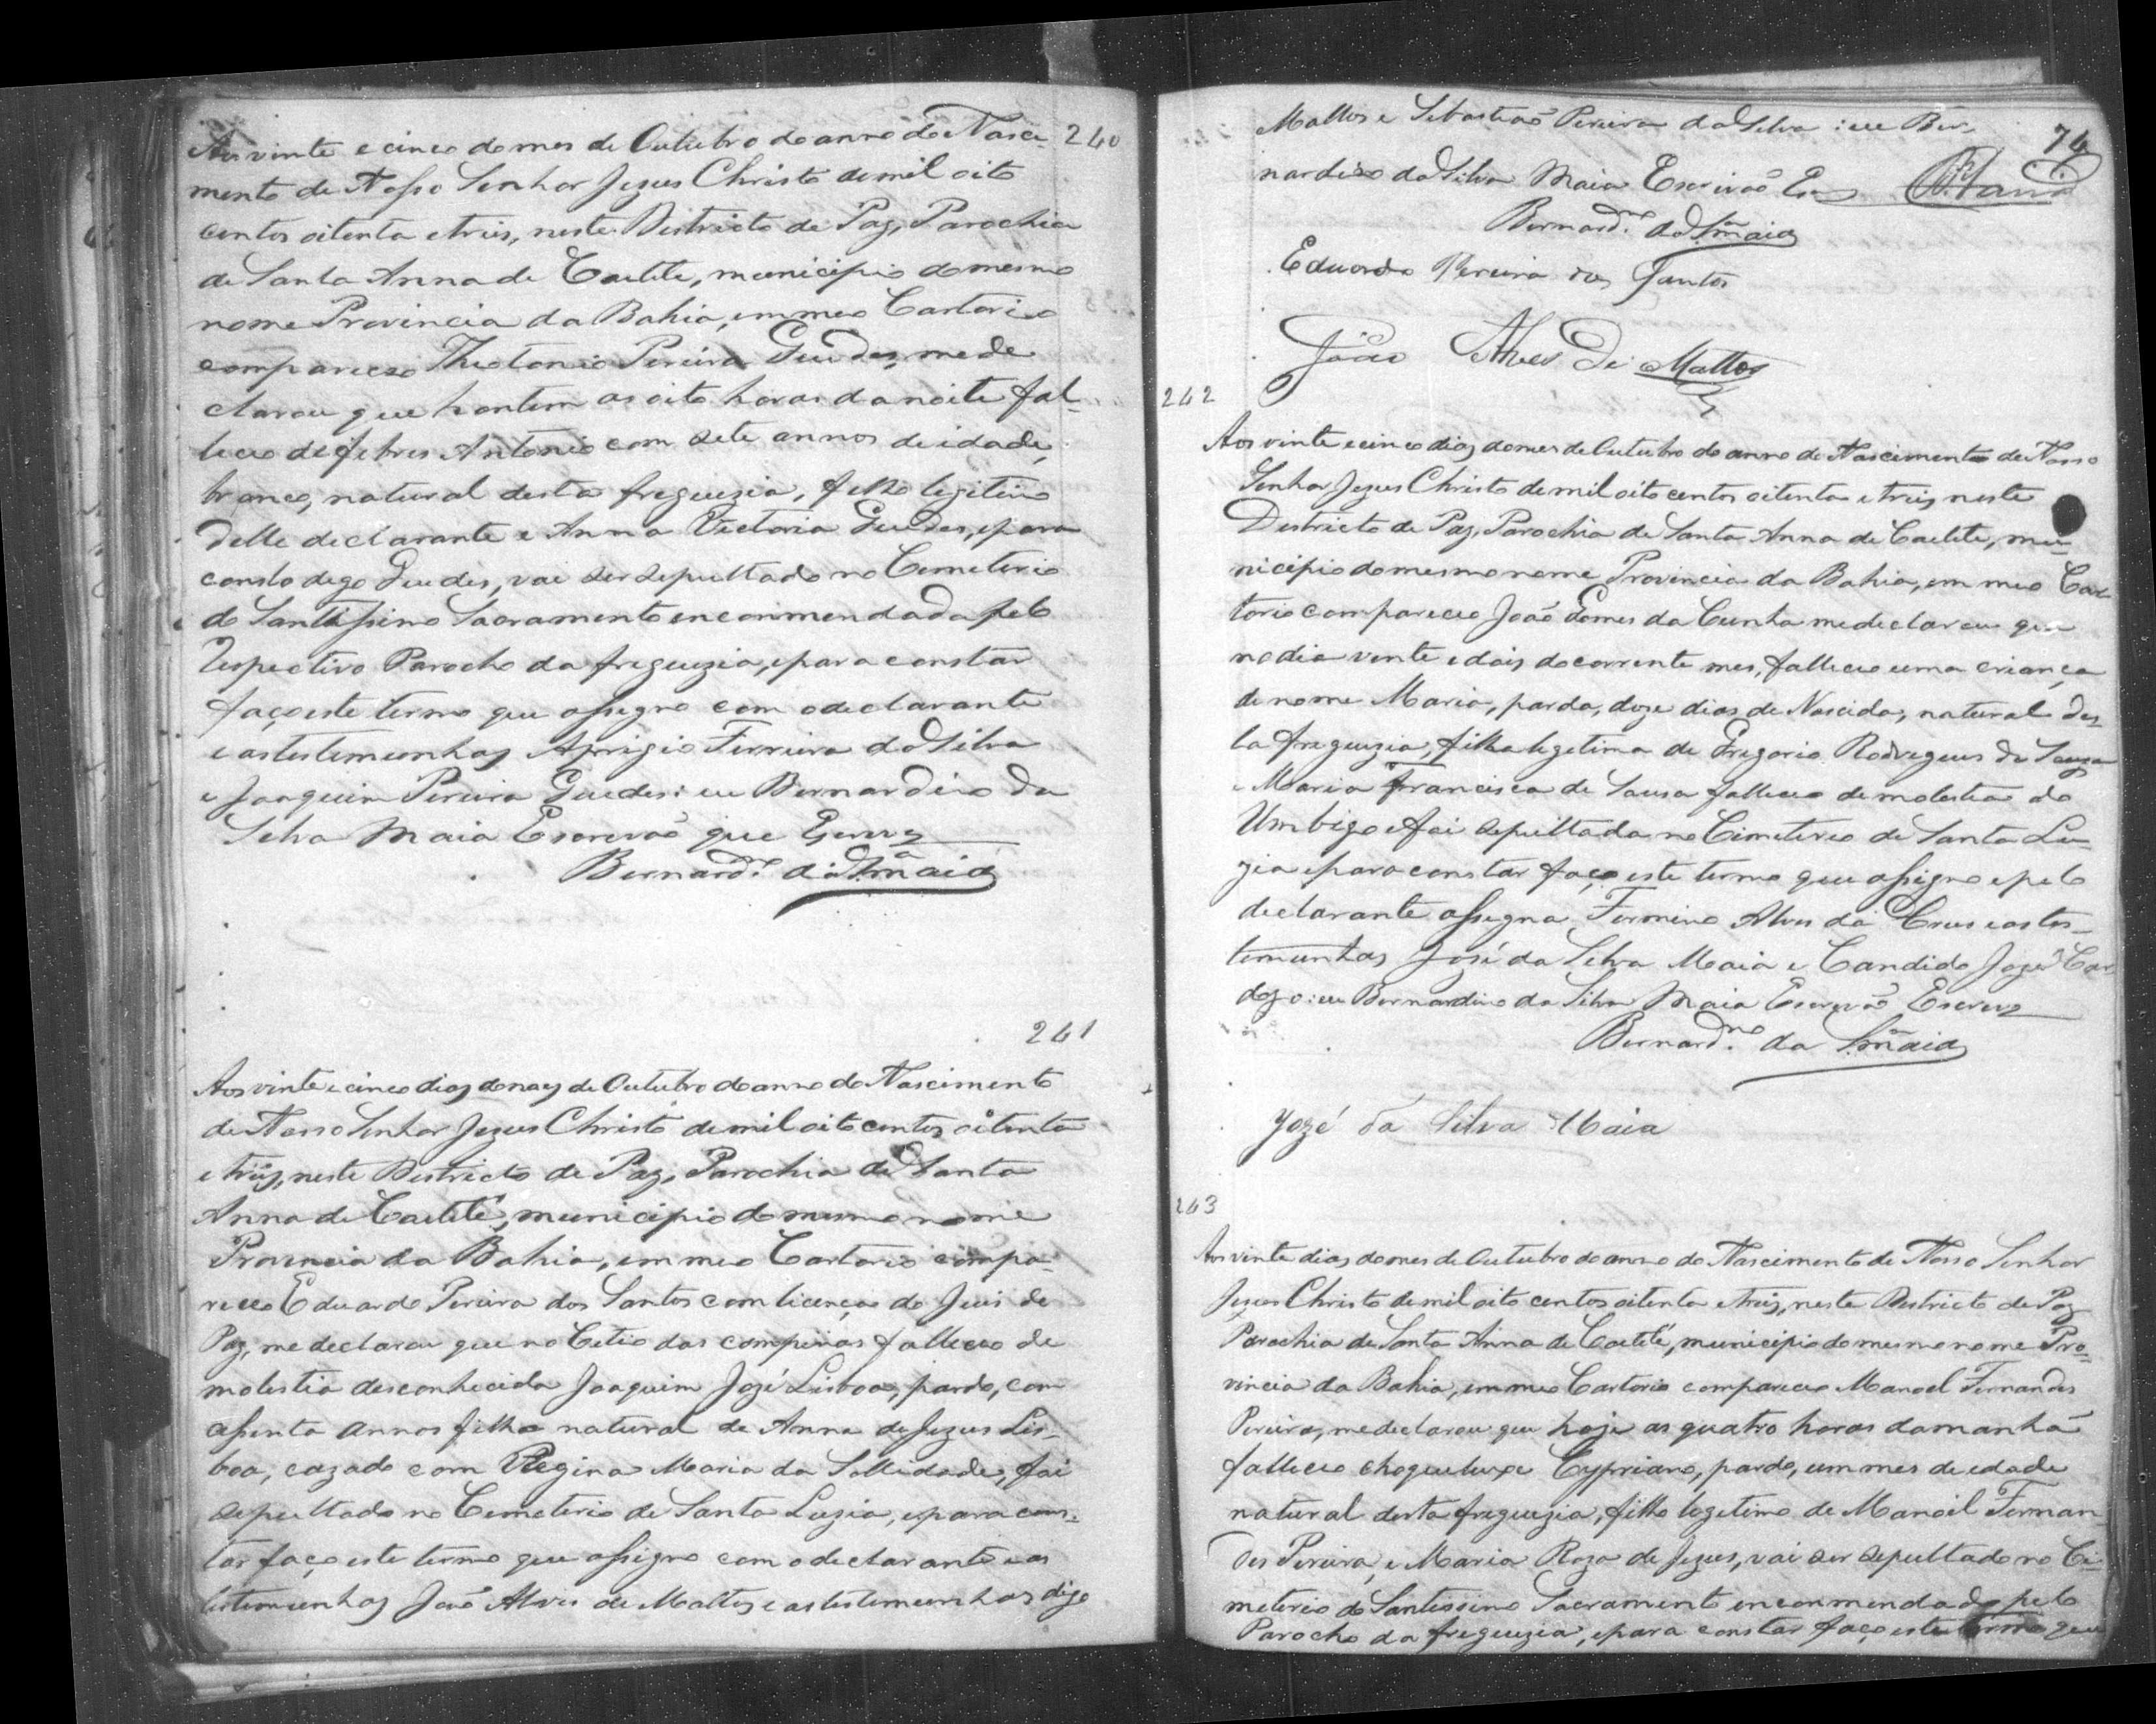 Aos vinte e cinco do mes de Outubro do anno do Nasci- 240
mento de Nosso Senhor Jezus Christo de mil oito
centos oitenta e tres, neste Districto de Paz, Parochia
de Santa Anna de Caetite, municipio do mesmo
nome Provincia da Bahia, em meo Cartorio
compareceo Theotonio Pereira Guedes, me de
clarou que hontem as oito horas da noite fal-
leceo de febres Antonio com sete annos de idade,
branco, natural desta freguezia, filho legitimo
delle declarante e Anna Victoria Guedes, e para
consto digo Guedes, vai ser sepultado no Cemeterio
do Santissimo Sacramento encommendada pelo
respectivo Parocho da freguezia, e para constar
faço este termo que assigno com o declarante
e as testemunhas Aprigio Ferreira da Silva
e Joaquim Pereira Guedes: eu Bernardino da
Silva Maia Escrevão que Escrevy
Bernard.º da S.ª Maia
241
Aos vinte e cinco dias do mes de Outubro do anno do Nascimento
de Nosso Senhor Jezus Christo de mil oito centos oitenta
e tres, neste Districto de Paz, Parochia de Santa
Anna de Caetité, municipio do mesmo nome
Provincia da Bahia, em meo Cartorio compa-
receo Eduardo Pereira dos Santos com licença do Juis de
Paz, me declarou que no Citio das campinas falleceo de
molestia desconhecida Joaquim José Lisboa, pardo, com
assenta annos filho natural de Anna de Jezus Lis-
boa, cazado com Regina Maria da Sollidade, foi
sepultado no Cemeterio de Santa Luzia, e para cons-
tar faço este termo que assigno com o declarante e as
testemunhas João Alves de Mattos e as testemunhas digo
Mattos e Sebastiaõ Pereira da Silva: eu Ber- 74
nardino da Silva Maia Escrivaõ Es
Bernard.no da S.ª Maia
Eduardo Pereira dos Santos
João Alves de Mattos
242
Aos vinte e cinco dias do mes de Outubro do anno do Nascimento de Nosso
Senhor Jezus Christo de mil oito centos oitenta e tres, neste
Destricto de Paz, Parochia de Santa Anna de Caetite, mu-
nicipio do mesmo nome Provincia da Bahia, em meo Car-
torio compareceo João Gomes da Cunha me declarou que
no dia vente e dois do corrente mes, falleceo uma criança
de nome Maria, parda, doze dias de Nascida, natural des-
ta freguezia, filha legetima de Gregorio Rodregues de Souza
e Maria Francisca de Sousa falleceo de molestia do
Umbigo e foi sepultada no Cimeterio de Santa Lu-
zia e para constar faço este termo que assigno e pelo
declarante assigna Fermino Alves da Crus e as tes-
temunhas José da Silva Maia e Candido Jozé Car-
dozo: eu Bernardino da Silva Maia Escrevaõ Escrevy
Bernard.no da S.ª Maia
Jozé da Silva Maia
243
Aos vinte dias do mes de Outubro do anno do Nascimento de Nosso Senhor
Jezus Christo de mil oito centos oitenta e tres, neste Destricto de Paz
Parochia de Santa Anna de Caetité, municipio do mesmo nome Pro-
vincia da Bahia, em meo Cartorio compareceo Manoel Fernandes
Pereira, me declarou que hoje as quatro horas da manhã
falleceo Cypriano, pardo, um mes de edade
natural desta freguezia, filho legetimo de Manoel Fernan
des Pereira, e Maria Roza de Jezus, vai ser sepultado no Ci-
meterio do Santessimo Sacramento encommendado pelo
Parocho da freguezia, e para constar faço este termo que